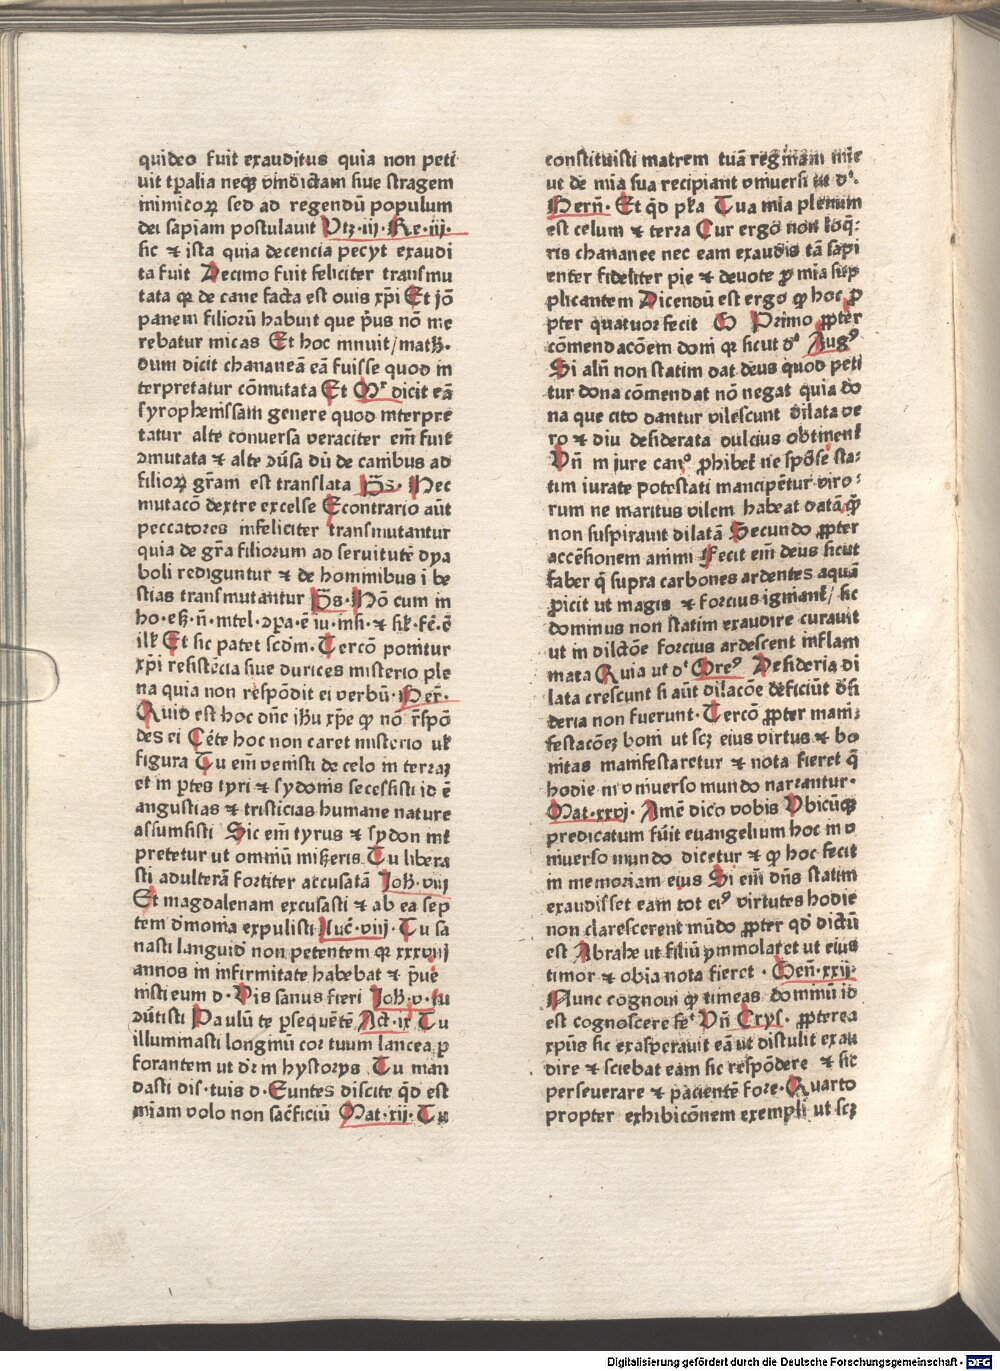 quideo fuit exauditus quia non peti
uit tp̄alia neqꝫ vindictam siue stragem
inimicoꝝ sed ad regendū populum
dei sapiam postulauit Vtꝫ·iij·Re·iij·
sic ⁊ ista quia decencia pecyt exaudi
ta fuit Decimo fuit feliciter transmu
tata qꝛ de cane facta est ouis xp̄i Et iō
panem filiorū habuit que pͥus nō me
rebatur micas Et hoc innuit/math̄·
dum dicit chananeā eā fuisse quod in
terpretatur cōmutata Et Mͬ dicit eā
syrophenissam genere quod interpre
tatur alte conuersa veraciter em̄ fuit
ɔmutata ⁊ alte ɔūsa dū de canibus ad
filioꝝ gr̄am est translata p̄s· Nec
mutacō dextre excelse Econtrario aūt
peccatores infeliciter transmutantur
quia de gr̄a filiorum ad seruitutē dya
boli rediguntur ⁊ de hominibus i be
stias transmutantur p̄s·Nō cum in
ho·eß·n̄·intel·ɔpa·ē iu·insi·⁊ sil·fc̄·ē
ill Et sic patet scdm̄· Tercō ponitur
xp̄i resistēcia siue durices misterio ple
na quia non respōdit ei verbū·Ber̄·
Quid est hoc dn̄e ih̄u xp̄e ꝙ nō r̄spō
des ei Cēte hoc non caret misterio ul
figura Tu em̄ venisti de celo in terraꝫ
et in ꝑtes tyri ⁊ sydonis secessisti id ē
angustias ⁊ tristicias humane nature
assumsisti Sic em̄ tyrus ⁊ sydon int
pretetur ut omniū miseris Tu libera
sti adulterā fortiter accusatā Joh̄·viij
Et magdalenam excusasti ⁊ ab ea sep
tem d̄monia expulisti Luc̄·viij· Tu sa
nasti languid' non petentem qꝛ xxxviij
annos in infirmitate habebat ⁊ p̄ue
nisti eum d·Vis sanus fieri Joh̄·v·tu
ɔūtisti Paulū te ꝑsequētē Act·ix Tu
illuminasti longinū cor tuum lancea ꝑ
forantem ut dr̄ in hystorys· Tu man
dasti dis·tuis d·Euntes discite qd̄ est
miām volo non sac̄ficiū Mat·xij·Tu
constituisti matrem tuā reginam mie
ut de mia sua recipiant vniuersi ut dͭ·
Bern̄· Et qd̄ pl̄a Tua mia plenum
est celum ⁊ terra Cur ergo non loqͬ:
ris chananee nec eam exaudis tā sapi
enter fideliter pie ⁊ deuote ꝓ mia sup
plicantem Dicendū est ergo ꝙ hoc ꝓ
pter quatuor fecit Primo ꝓpter
cōmendacōem doni qꝛ sicut dͭ Augꝰ
Si aln̄ non statim dat deus quod peti
tur dona cōmendat nō negat quia do
na que cito dantur vilescunt dilata ve
ro ⁊ diu desiderata dulcius obtinent
Vn̄ in iure canꝰ ꝓhibet ne spōse sta:
tim iurate potestati mancipētur viro:
rum ne maritus vilem habeat datā qͣ
non suspirauit dilatā Secundo ꝓpter
accēsionem animi Fecit em̄ deus sicut
faber qͥ supra carbones ardentes aquā
ꝓicit ut magis ⁊ forcius igniant/ sic
dominus non statim exaudire curauit
ut in dilctōe forcius ardescent inflam
mata Quia ut dͭ Greꝰ Desideria di
lata crescunt si aūt dilacōe deficiūt dsi
deria non fuerunt·Tercō ꝓpter mani:
festacōeꝫ boni ut scꝫ eius virtus ⁊ bo
nitas manifestaretur ⁊ nota fieret qͥ
hodie in vniuerso mundo narrantur·
Mat·xxvj· Amē dico vobis Vbicūqꝫ
predicatum fūit euangelium hoc in v
niuerso mundo dicetur ⁊ ꝙ hoc fecit
in memoriam eius Si em̄ dn̄s statim
exaudisset eam tot eiꝰ virtutes hodie
non clarescerent mūdo ꝓpter qd̄ dictū
est Abrahe ut filiū ymmolaret ut eius
timor ⁊ obia nota fieret · Gen̄·xxij·
Nunc cognoui ꝙ timeas dominū id
est cognoscere feͭ Vn̄ Crys· ꝓpterea
xpūs sic exasperauit eā ut distulit exau
dire ⁊ sciebat eam sic respōdere ⁊ sic
perseuerare ⁊ pacientē fore·Quarto
propter exhibicōnem exempli ut scꝫ
Digitalisierung gefördert durch die Deutsche Forschungsgemeinschaft · DFG